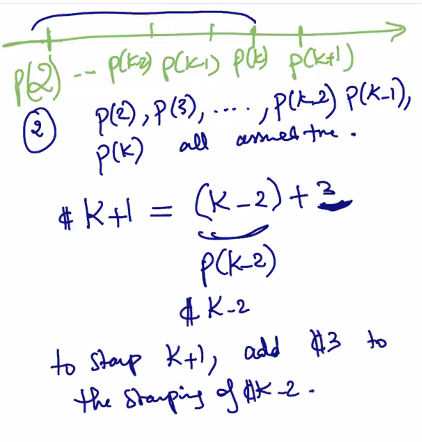 P(2) -- P(k-2) P(k-1) P(k) P(k+1)
② P(2), P(3), ...., P(k-2) P(k-1),
P(k) all assumed true.
¢ k+1 = (k-2) + 3
P(k-2)
¢ k-2
to stamp k+1, add ¢3 to
the stamping of ¢k-2.